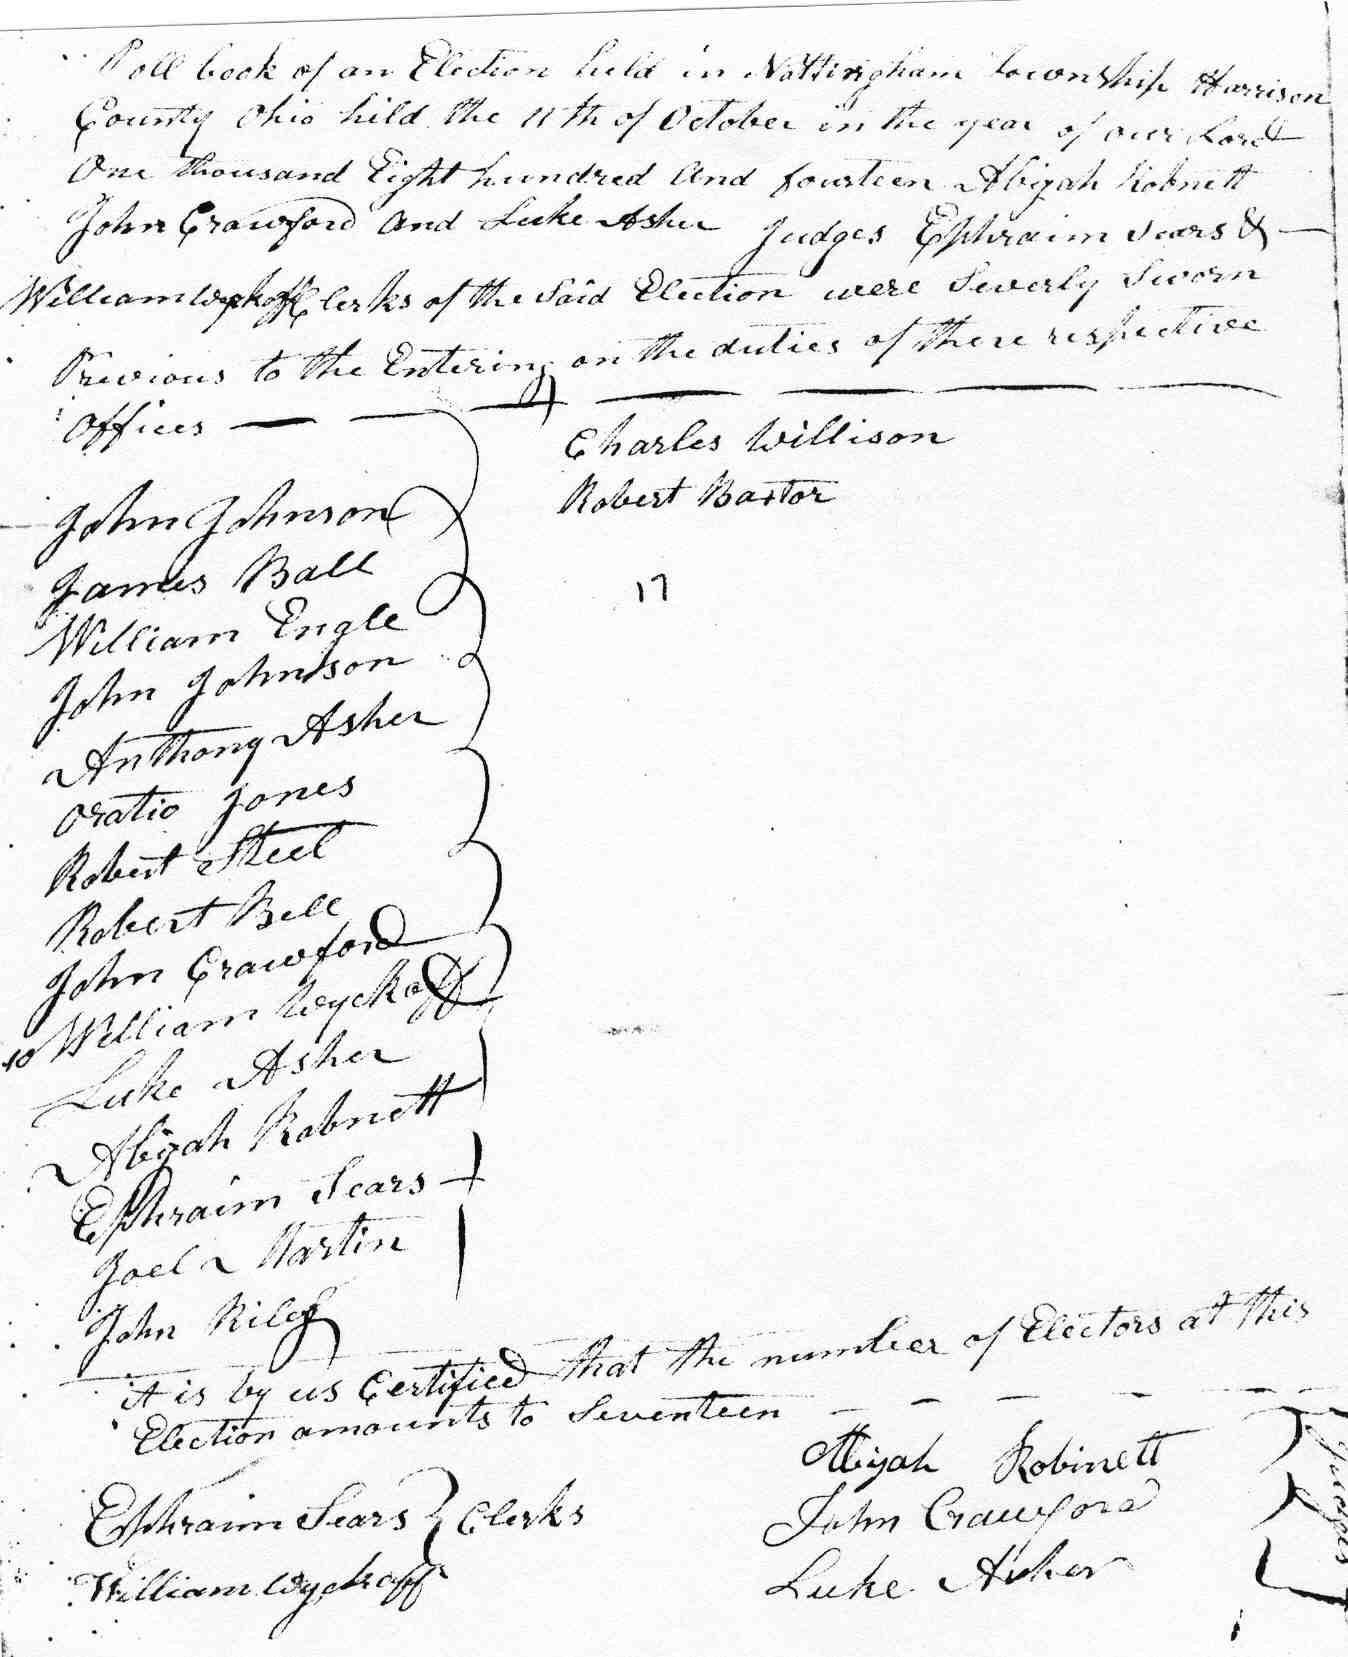 Poll book of an Election held in Nottingham Township Harrison
County Ohio hild the 11th of October in the year of our Lord
One thousand Eight hundred And fourteen Abijah Robnett
John Crawford And Luke Asher Judges Ephraim Sears &
William Wyckoff Clerks of the Said Election were Severly Sworn
Previous to the Entering on the duties of there respective
offices
Charles Willison
Robert Baxtor
17
John Johnson
James Ball
William Engle
John Johnson
Anthony Asher
Oratio Jones
Robert Steel
Robert Bell
John Crawford
10 William Wyckoff
Luke Asher
Abijah Robnett
Ephraim Sears
Joel Martin
John Riley
it is by us Certified that the number of Electors at this
Election amounts to Seventeen
Ephraim Sears } Clerks
William Wyckoff
Abijah Robinett
John Crawford
Luke Asher
Judges